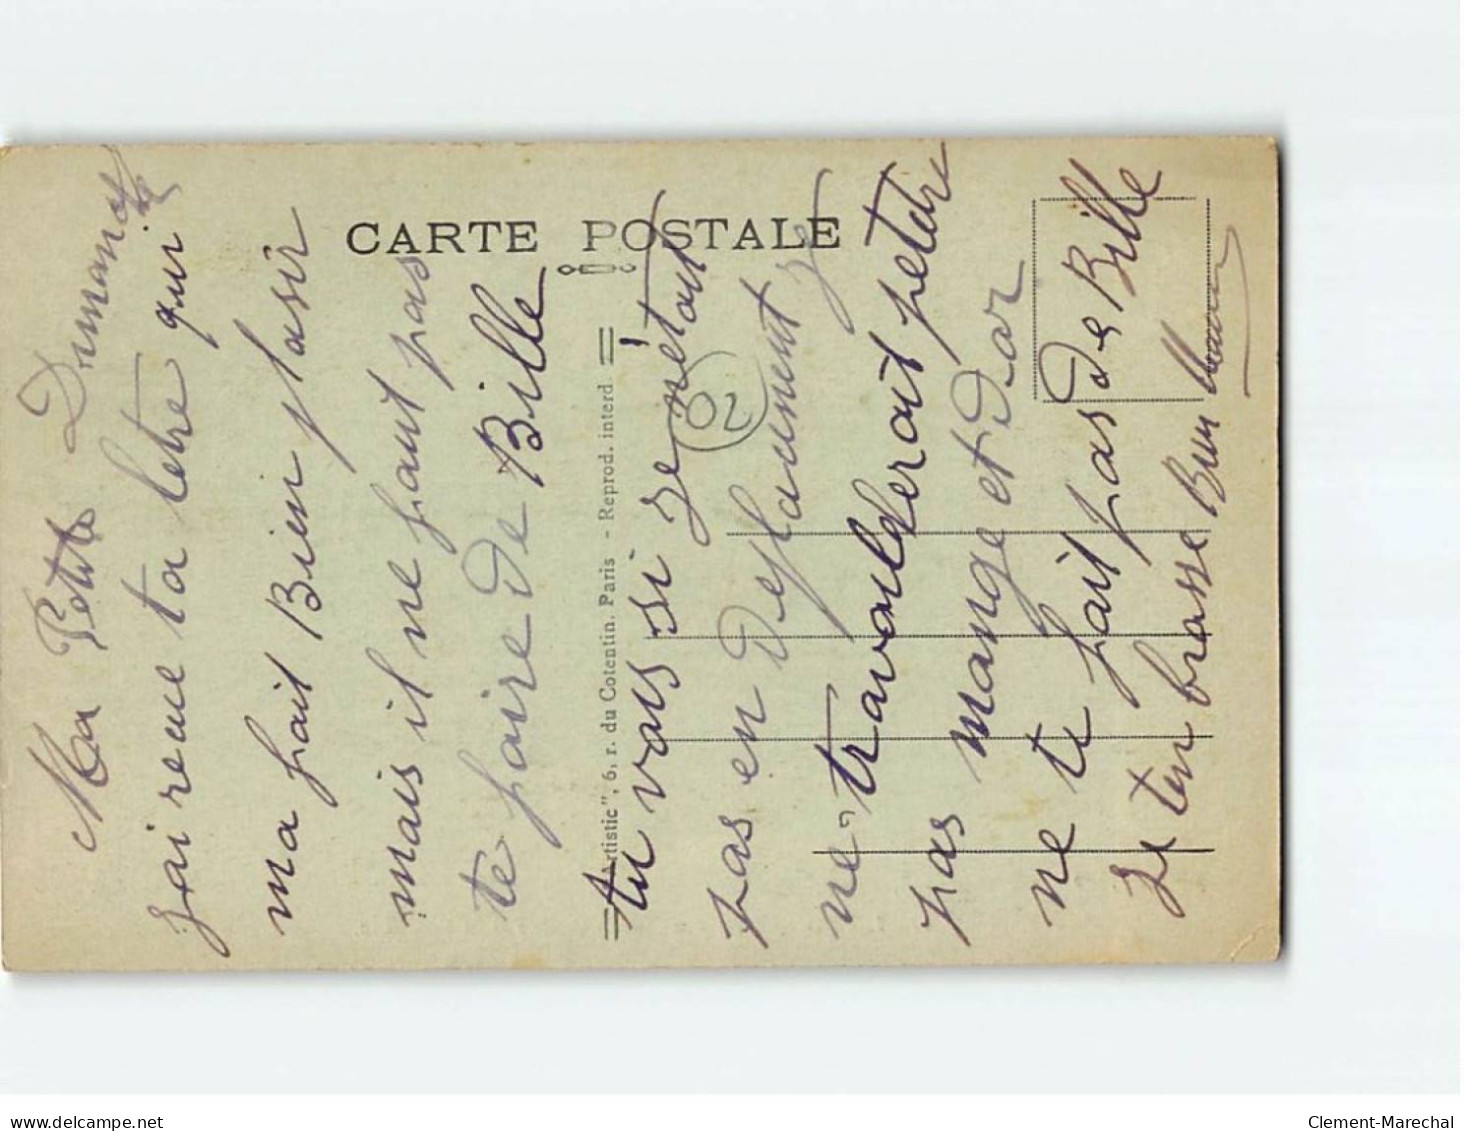 CARTE POSTALE
"Artistic", 6, r. du Cotentin. Paris - Reprod. interd
02
Ma Petite
jai reçue ta letre qui
ma fait Bien plasir
mais il ne faut pas
te faire de Bille
tu vois si je nétait
pas en deplaument je
ne travailleroit petetre
pas mange et dor
ne te fait pas de Bille
je ten brasse Bien
www.delcampe.net
Clement-Marechal